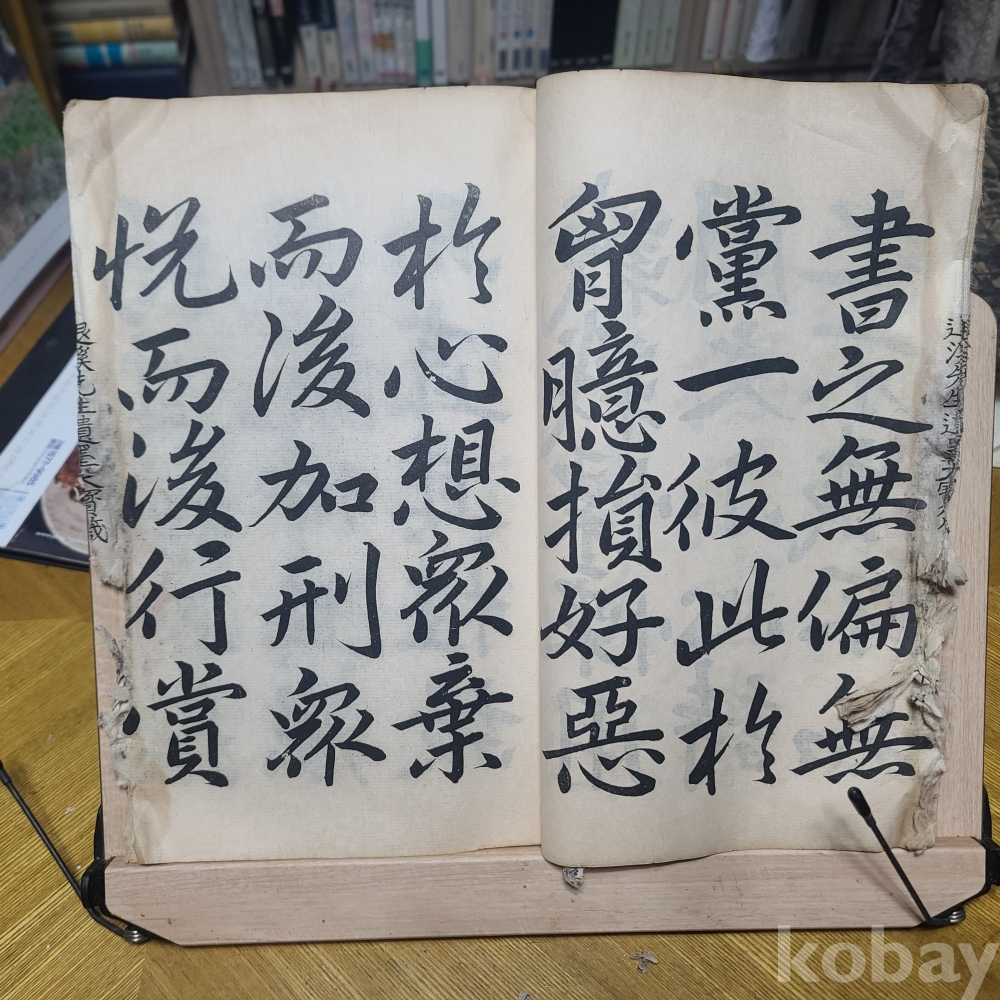 書之無偏無
黨一彼此於
胷臆損好惡
於心想衆棄
而後加刑衆
悅而後行賞
退溪先生遺墨大寶藏
kobay